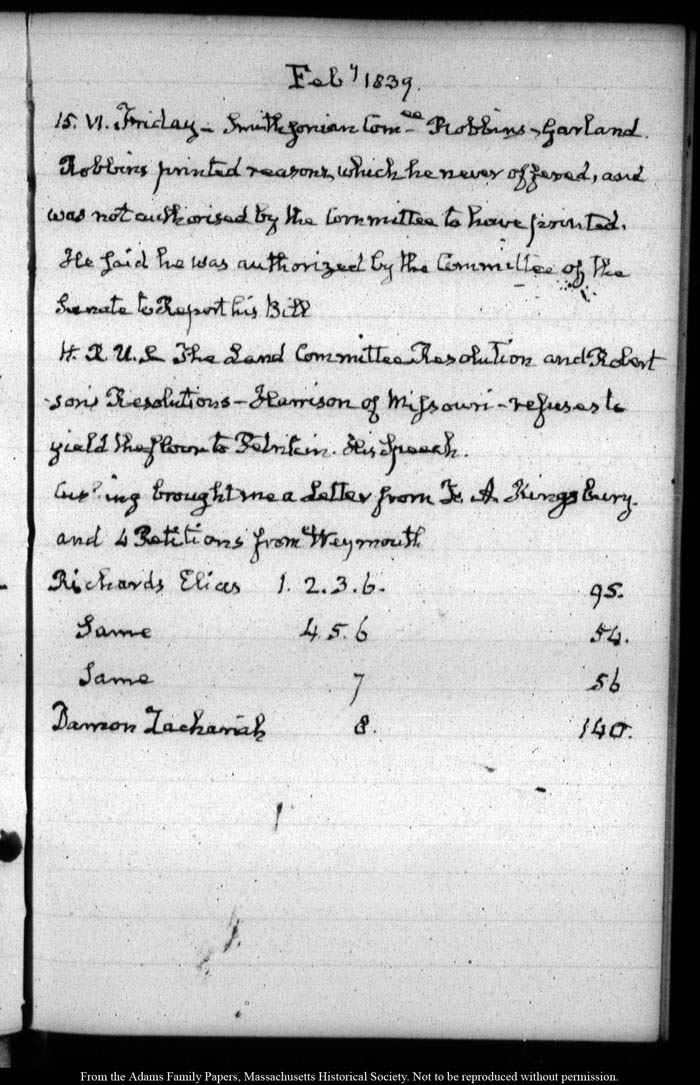 Feby 1839.
15. VI. Friday - Smithsonian Comee Robbins - Garland.
Robbins printed reasons, which he never offered, and
was not authorised by the Committee to have printed.
He said he was authorized by the Committee of the
Senate to Report his Bill
H. R. U. S. The Land Committee Resolution and Robert
sons Resolutions - Harrison of Missouri - refuses to
yield the floor to Petrikin. His Speech.
Cushing brought me a Letter from A. Kingsbury.
and 4 Petitions from Weymouth
Richards Elias 1. 2. 3. 6. 95.
Same 4. 5. 6 54.
Same 7 56
Damon Zachariah 8. 140.
From the Adams Family Papers, Massachusetts Historical Society. Not to be reproduced without permission.